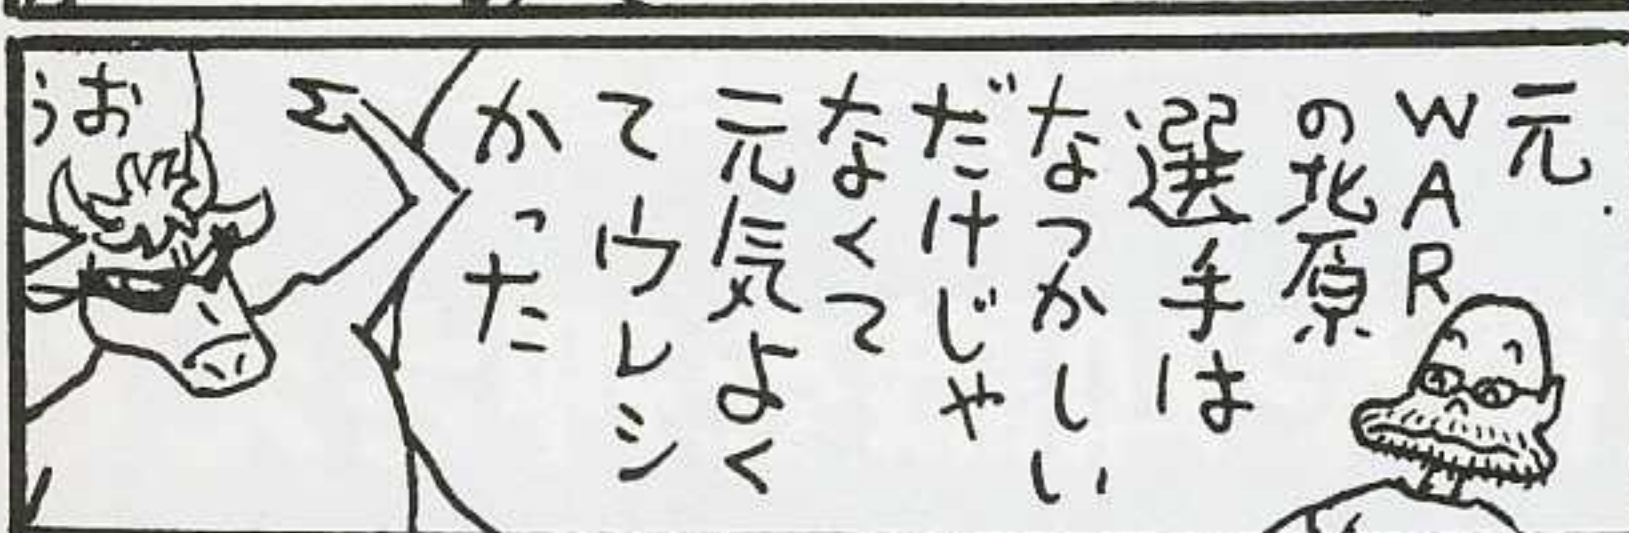 元
WAR
の北原
選手は
なつかしい
だけじゃ
なくて
元気よく
てウレシ
かった
おう